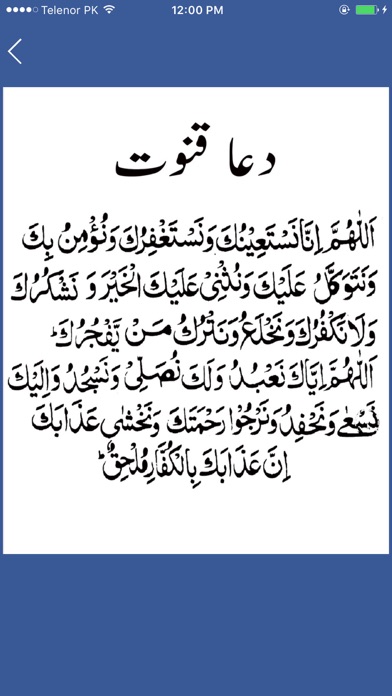 Telenor PK 12:00 PM
دعا قنوت
اَللّٰهُمَّ اِنَّا نَسْتَعِيْنُكَ وَنَسْتَغْفِرُكَ وَنُؤْمِنُ بِكَ
وَنَتَوَكَّلُ عَلَيْكَ وَنُثْنِیْ عَلَيْكَ الْخَيْرَ وَ نَشْكُرُكَ
وَلَا نَكْفُرُكَ وَنَخْلَعُ وَنَتْرُكُ مَنْ يَّفْجُرُكَ ؕ
اَللّٰهُمَّ اِيَّاكَ نَعْبُدُ وَلَكَ نُصَلِّیْ وَنَسْجُدُ وَاِلَيْكَ
نَسْعٰی وَنَحْفِدُ وَنَرْجُوْا رَحْمَتَكَ وَنَخْشٰی عَذَابَكَ
اِنَّ عَذَابَكَ بِالْكُفَّارِ مُلْحِقٌ ؕ